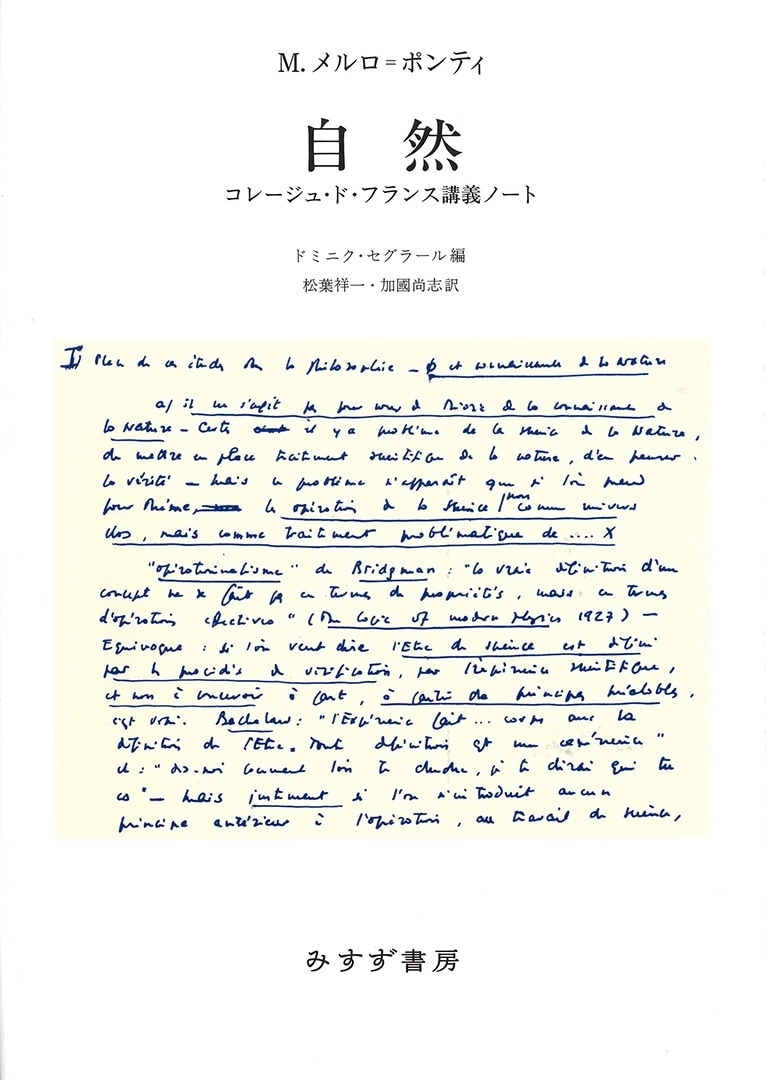 M. メルロ=ポンティ
自然
コレージュ・ド・フランス講義ノート
ドミニク・セグラール編
松葉祥一・加國尚志訳
I) Plan de ces études sur la philosophie – et connaissance de la Nature
a/ il ne s'agit pas pour nous de théorie de la connaissance de
la Nature – Certes il y a problème de la science de la Nature,
de mettre en place traitement scientifique de la nature, d'en penser
la vérité – mais ce problème n'apparaît que si l'on prend
pour thème, les opérations de la science non comme univers
clos, mais comme traitement problématique de .... X
"opérationnalisme" de Bridgman : "la vraie définition d'un
concept ne se fait pas en termes de propriétés, mais en termes
d'opérations effectives" (The logic of modern physics 1927) –
Equivoque : si l'on veut dire l'Etre de science est défini
par les procédés de vérification, par l'expérience scientifique,
et non à concevoir à part, à partir de principes préalables,
c'est vrai. Bachelard : "l'Expérience fait ... corps avec la
définition de l'Etre. Toute définition est une expérience"
et : "dis-moi comment l'on te cherche, je te dirai qui tu
es" – mais justement si l'on n'introduit aucun
principe antérieur à l'opération, au travail de science,
みすず書房